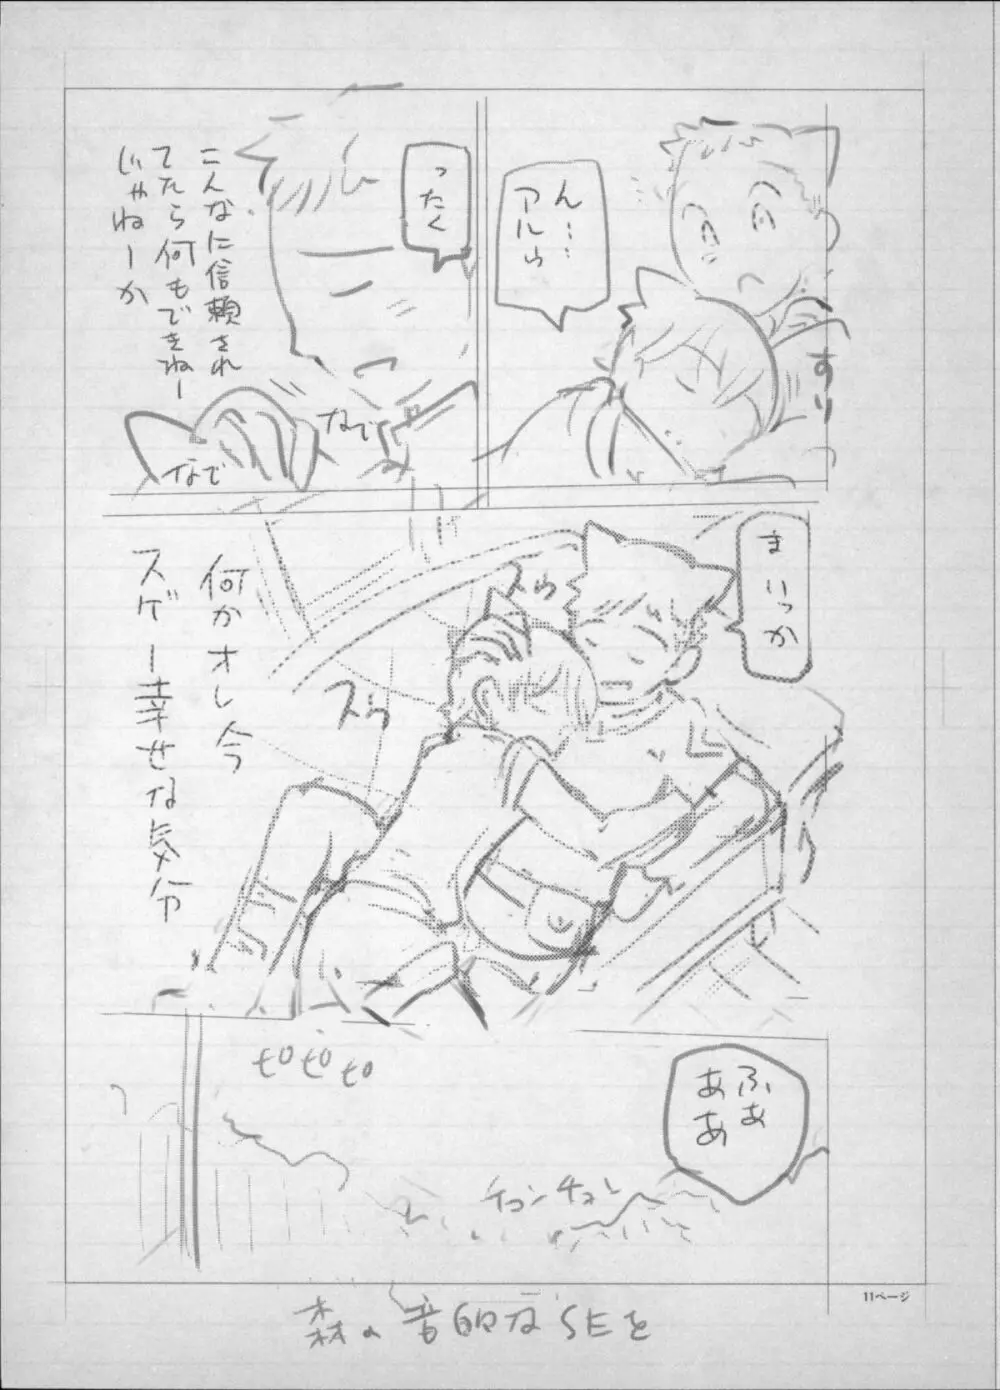 ん……
アルゥ
すり
ったく
こんなに信頼され
てたら何もできねー
じゃねーか
なで
なで
まいっか
スゥ
スゥ
何かオレ今
スゲー幸せな気分
ピピピ
ふぁ
ああ
チュンチュン
11ページ
森の音的なSEを